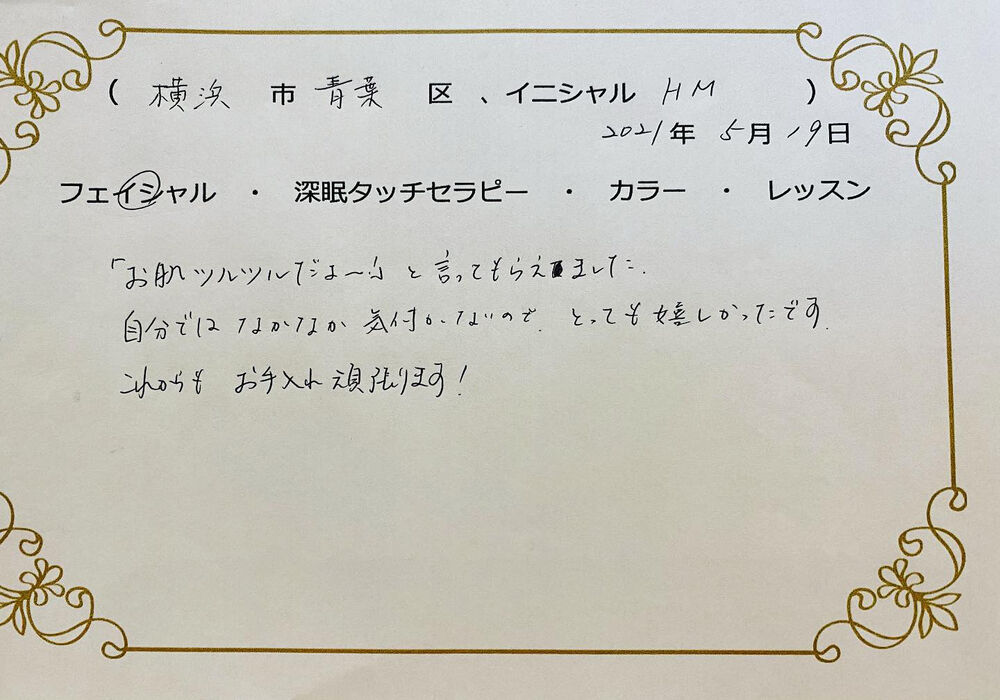 ( 横浜 市 青葉 区 、イニシャル HM )
2021年 5月 19日
フェイシャル ・ 深眠タッチセラピー ・ カラー ・ レッスン
「お肌ツルツルだよ〜☆」と言ってもらえました.
自分では なかなか 気付かないので. とっても嬉しかったです.
これからも お手入れ頑張ります!